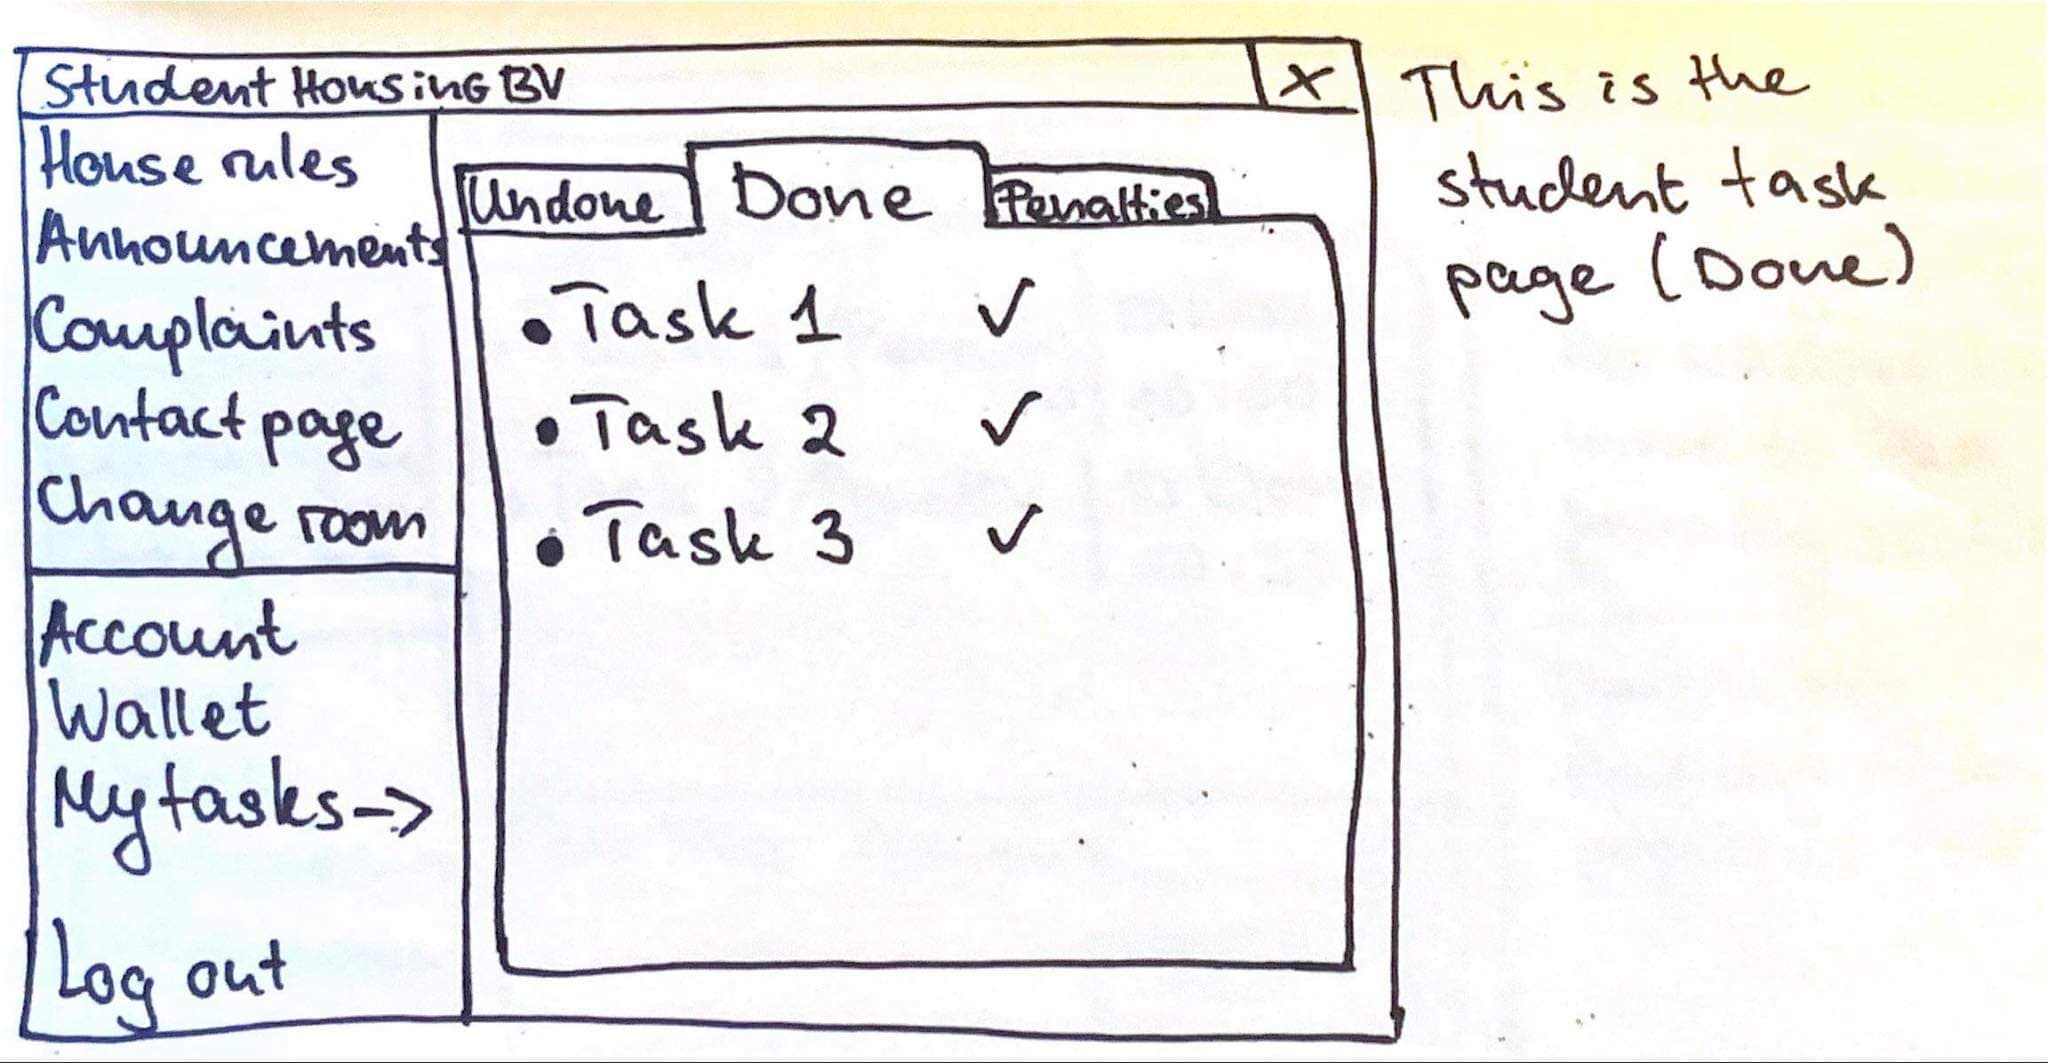 Student Housing BV X
House rules
Announcements
Complaints
Contact page
Change room
Account
Wallet
My tasks ->
Log out
Undone Done Penalties
• Task 1 ✓
• Task 2 ✓
• Task 3 ✓
This is the
student task
page (Done)